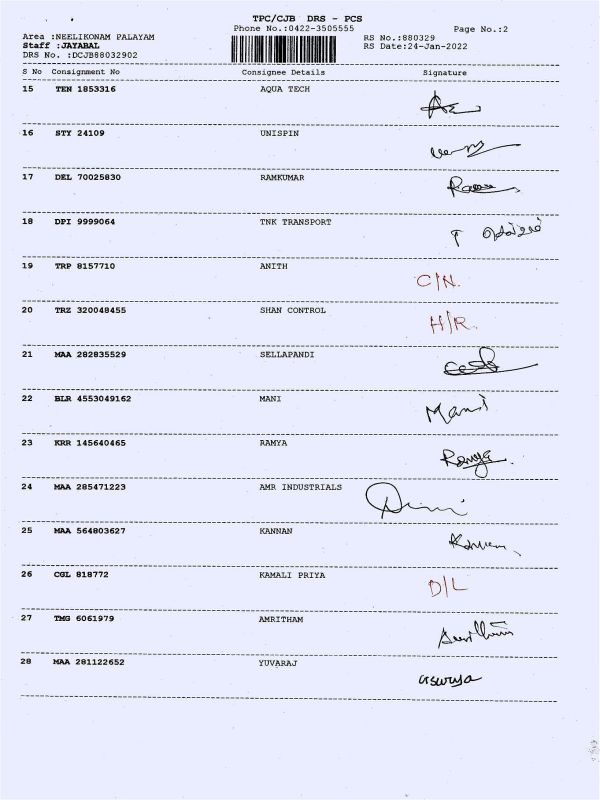 TPC/CJB DRS - PCS
Phone No.:0422-3505555
Page No.:2
Area :NEELIKONAM PALAYAM
RS No.:880329
Staff :JAYABAL
RS Date:24-Jan-2022
DRS No. :DCJB88032902
S No Consignment No Consignee Details Signature
15 TEN 1853316 AQUA TECH
16 STY 24109 UNISPIN
17 DEL 70025830 RAMKUMAR
18 DPI 9999064 TNK TRANSPORT
19 TRP 8157710 ANITH C/N.
20 TRZ 320048455 SHAN CONTROL H/R.
21 MAA 282835529 SELLAPANDI
22 BLR 4553049162 MANI Mani
23 KRR 145640465 RAMYA Ramya
24 MAA 285471223 AMR INDUSTRIALS
25 MAA 564803627 KANNAN
26 CGL 818772 KAMALI PRIYA D/L
27 TMG 6061979 AMRITHAM
28 MAA 281122652 YUVARAJ